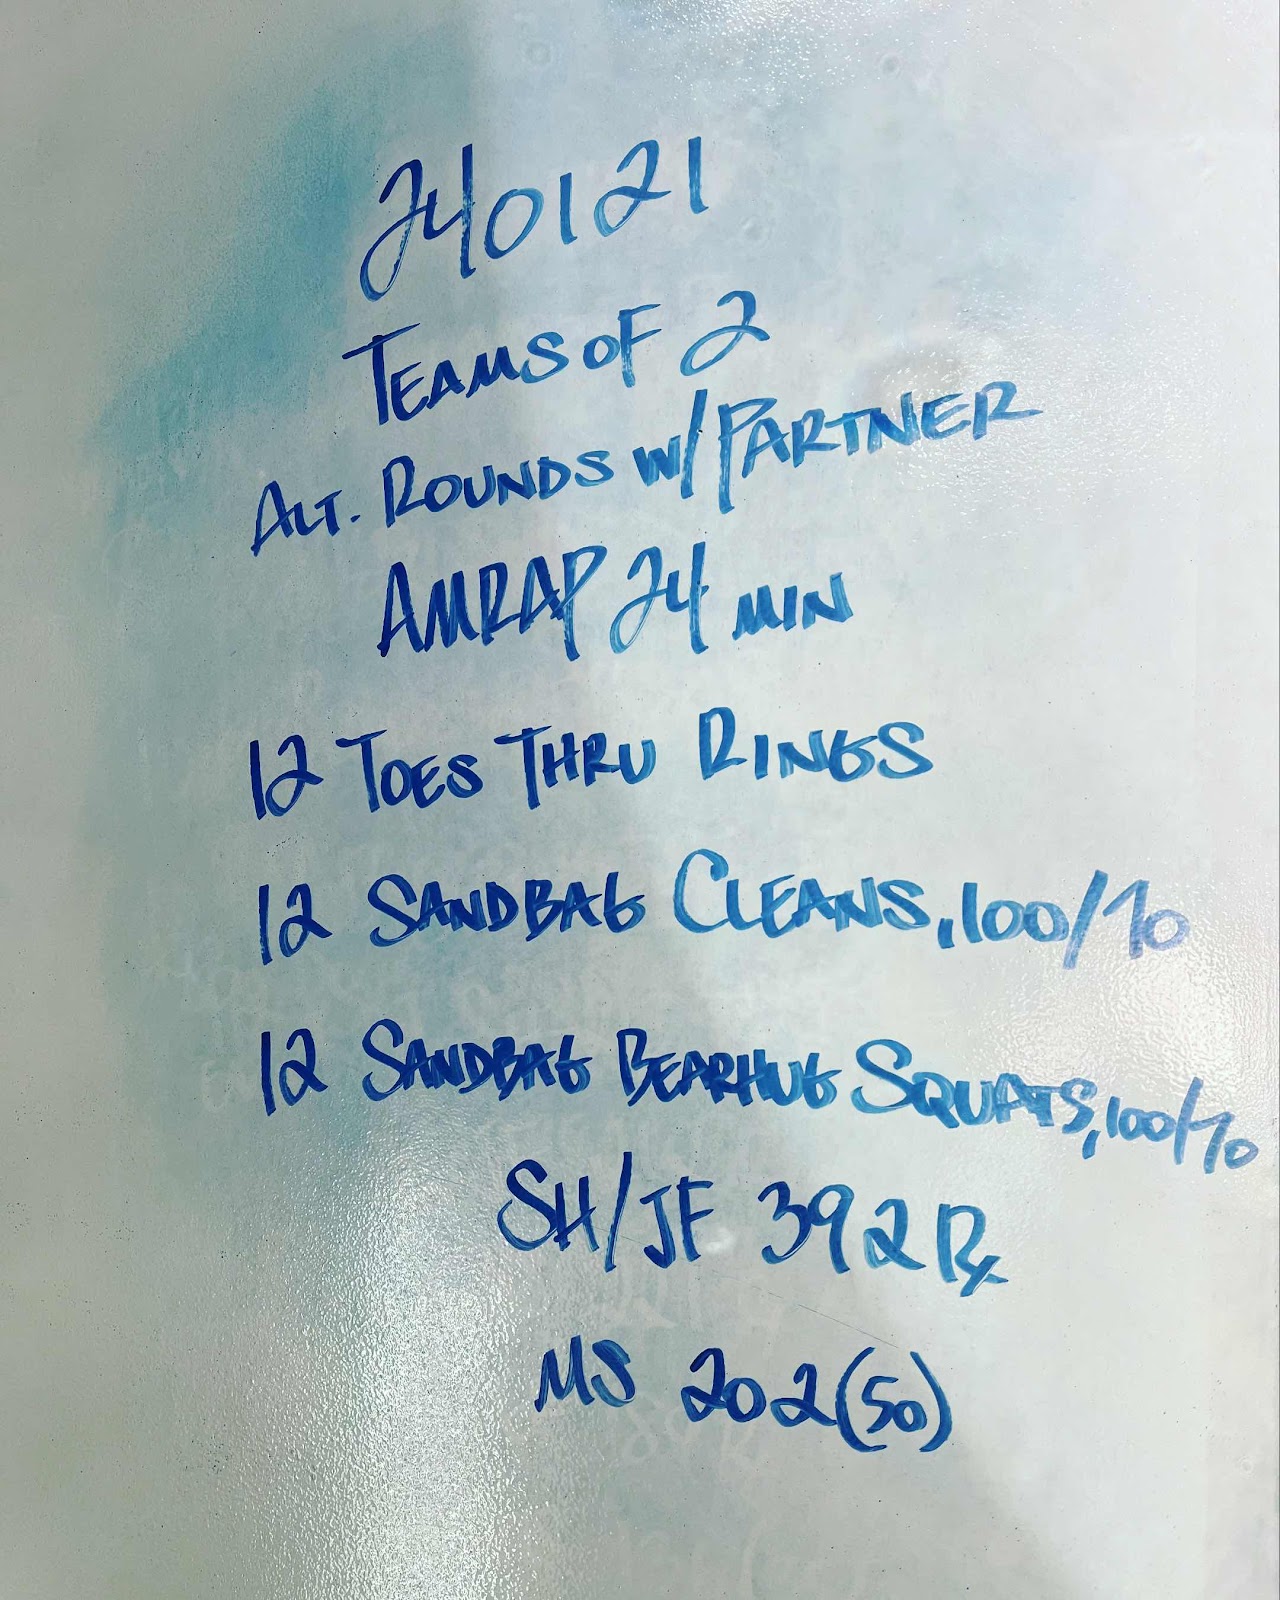 240121
TEAMS OF 2
ALT. ROUNDS W/PARTNER
AMRAP 24 MIN
12 TOES THRU RINGS
12 SANDBAG CLEANS, 100/70
12 SANDBAG BEARHUG SQUATS, 100/70
SH/JF 392 Rx
MS 202(50)